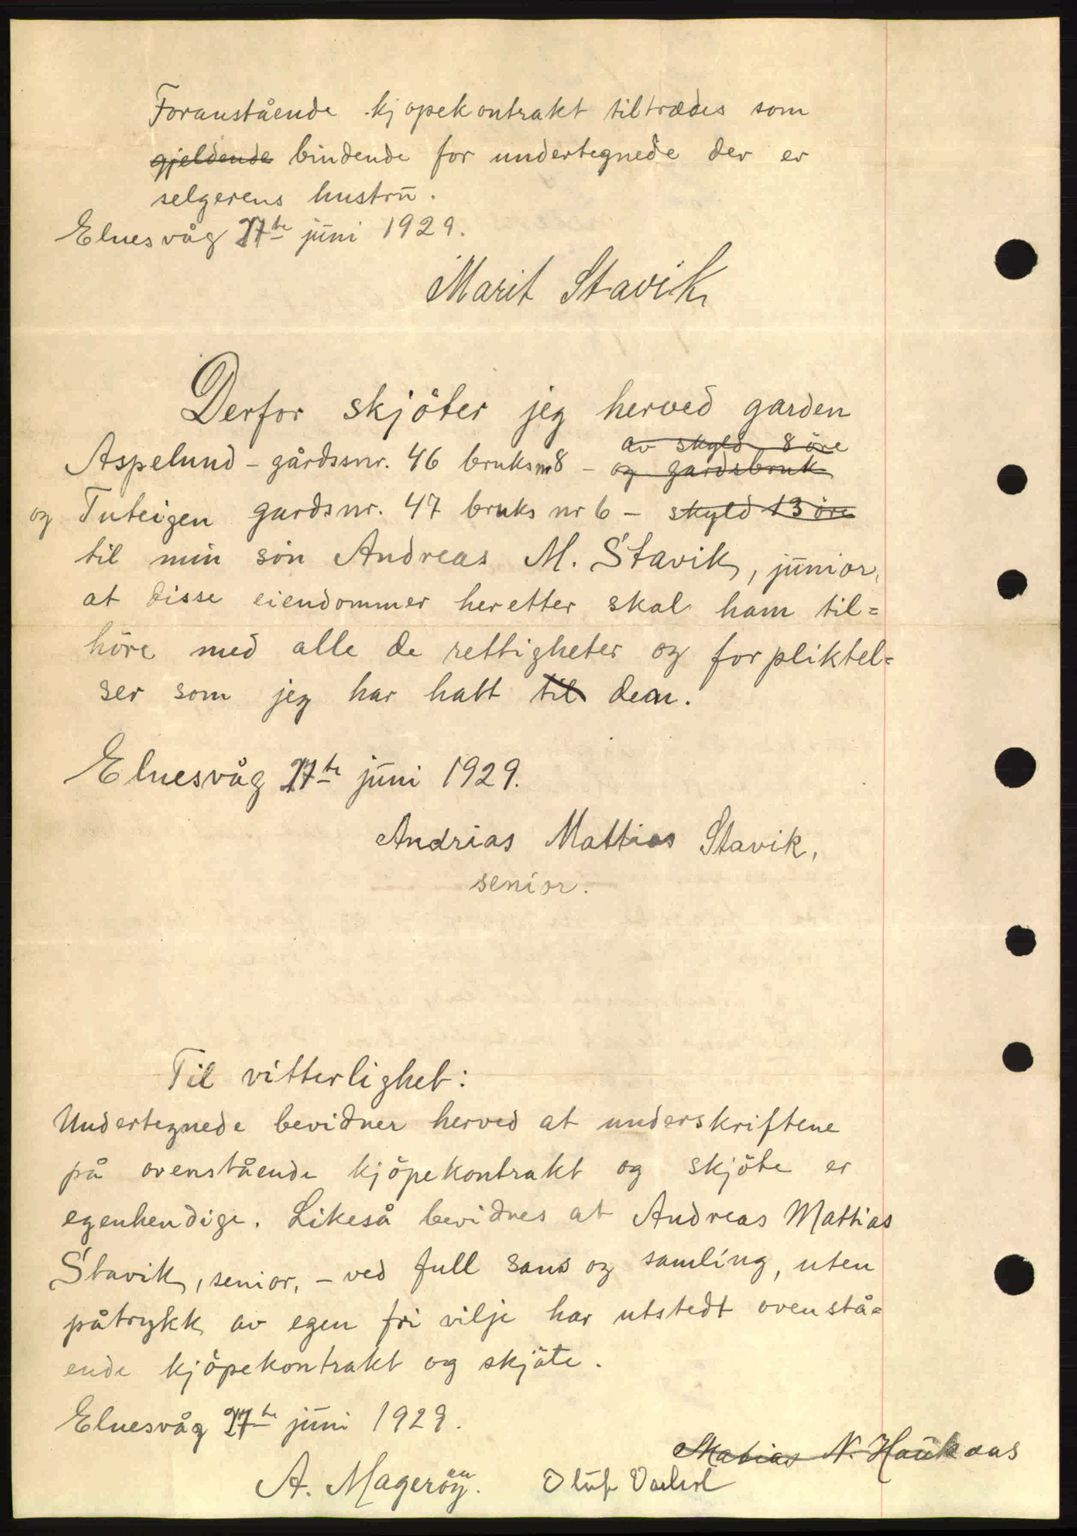 Foranstående kjøpekontrakt tiltrædes som
gjeldende bindende for undertegnede der er
selgerens hustru.
Elnesvåg 27de juni 1929.
Marit Stavik
Derfor skjöter jeg herved garden
av skyld 8 öre
Aspelund - gårdssnr. 46 bruksnr 8 - og gardsbruk
og Tuteigen gardsnr. 47 bruks nr 6 - skyld 13 öre
til min sön Andreas M. Stavik, junior,
at disse eiendommer heretter skal ham til=
höre med alle de rettigheter og forpliktel=
ser som jeg har hatt til dem.
Elnesvåg 27de juni 1929.
Andrias Mattias Stavik,
senior.
Til vitterlighet:
Undertegnede bevidner herved at underskriftene
på ovenstående kjöpekontrakt og skjöte er
egenhendige. Likeså bevidnes at Andreas Mattias
Stavik, senior, - ved full sans og samling, uten
påtrykk av egen fri vilje har utstedt ovenstå=
ende kjöpekontrakt og skjöte.
Elnesvåg 27de juni 1929.
Matias N. Haukaas
A. Magerøy. Oluf